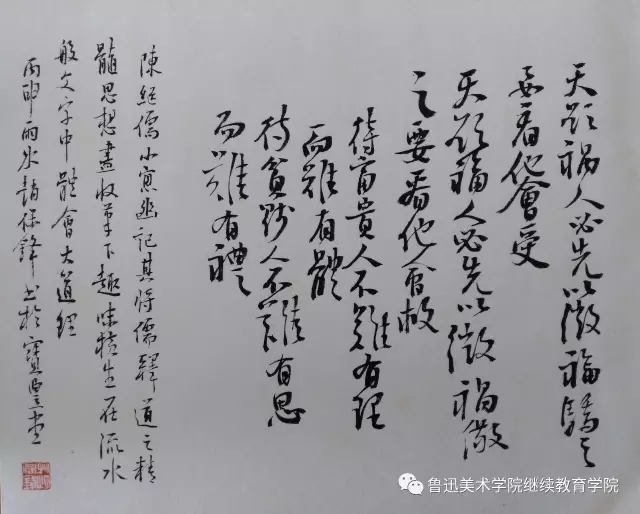 天欲祸人必先以微福驕之
要看他會受
天欲福人必先以微祸儆
之要看他會救
待富貴人不難有理
而難有體
待貧賤人不難有恩
而難有禮
陳継儒小窓幽記其将儒釋道之精
髓思想盡收筆下趣味橫生在流水
般文字中體會大道理
丙申雨水趙保鋒书於寶墨堂
鲁迅美术学院继续教育学院